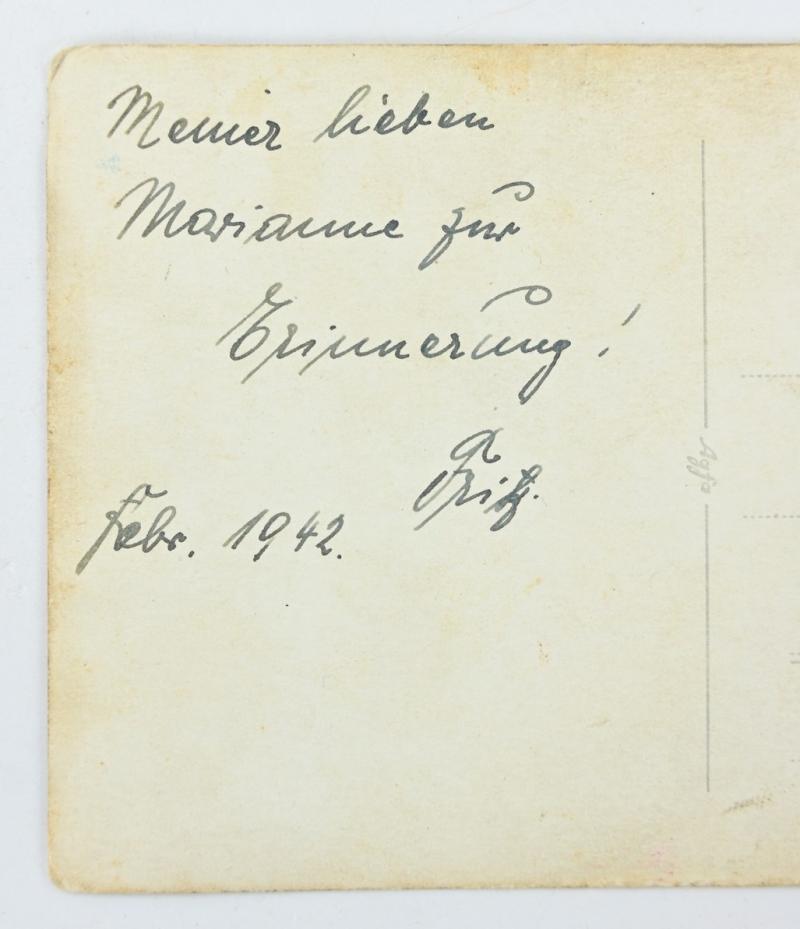 Meiner lieben
Marianne zur
Erinnerung!
Fritz.
Febr. 1942.
Agfa